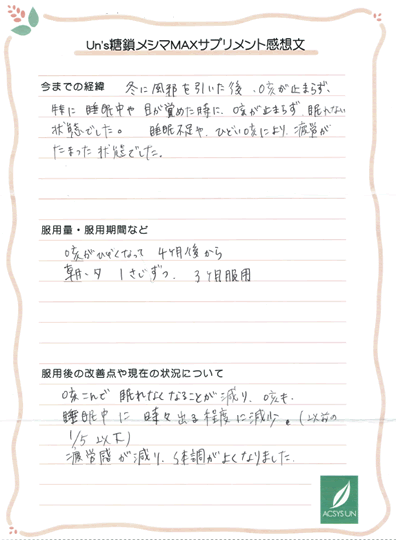 Un's糖鎖メシマMAXサプリメント感想文
今までの経緯 冬に風邪を引いた後、咳が止まらず、
特に睡眠中や目が覚めた時に、咳が止まらず、眠れない
状態でした。 睡眠不足や、ひどい咳により、疲労が
たまった状態でした。
服用量・服用期間など
咳がひどくなって 4ヶ月後から
朝、夕 1さじずつ、 3ヶ月服用
服用後の改善点や現在の状況について
咳こんで 眠れなくなることが減り、咳も、
睡眠中に 時々出る程度に減少。(以前の
1/5以下)
疲労感が減り、体調がよくなりました。
ACSYS UN